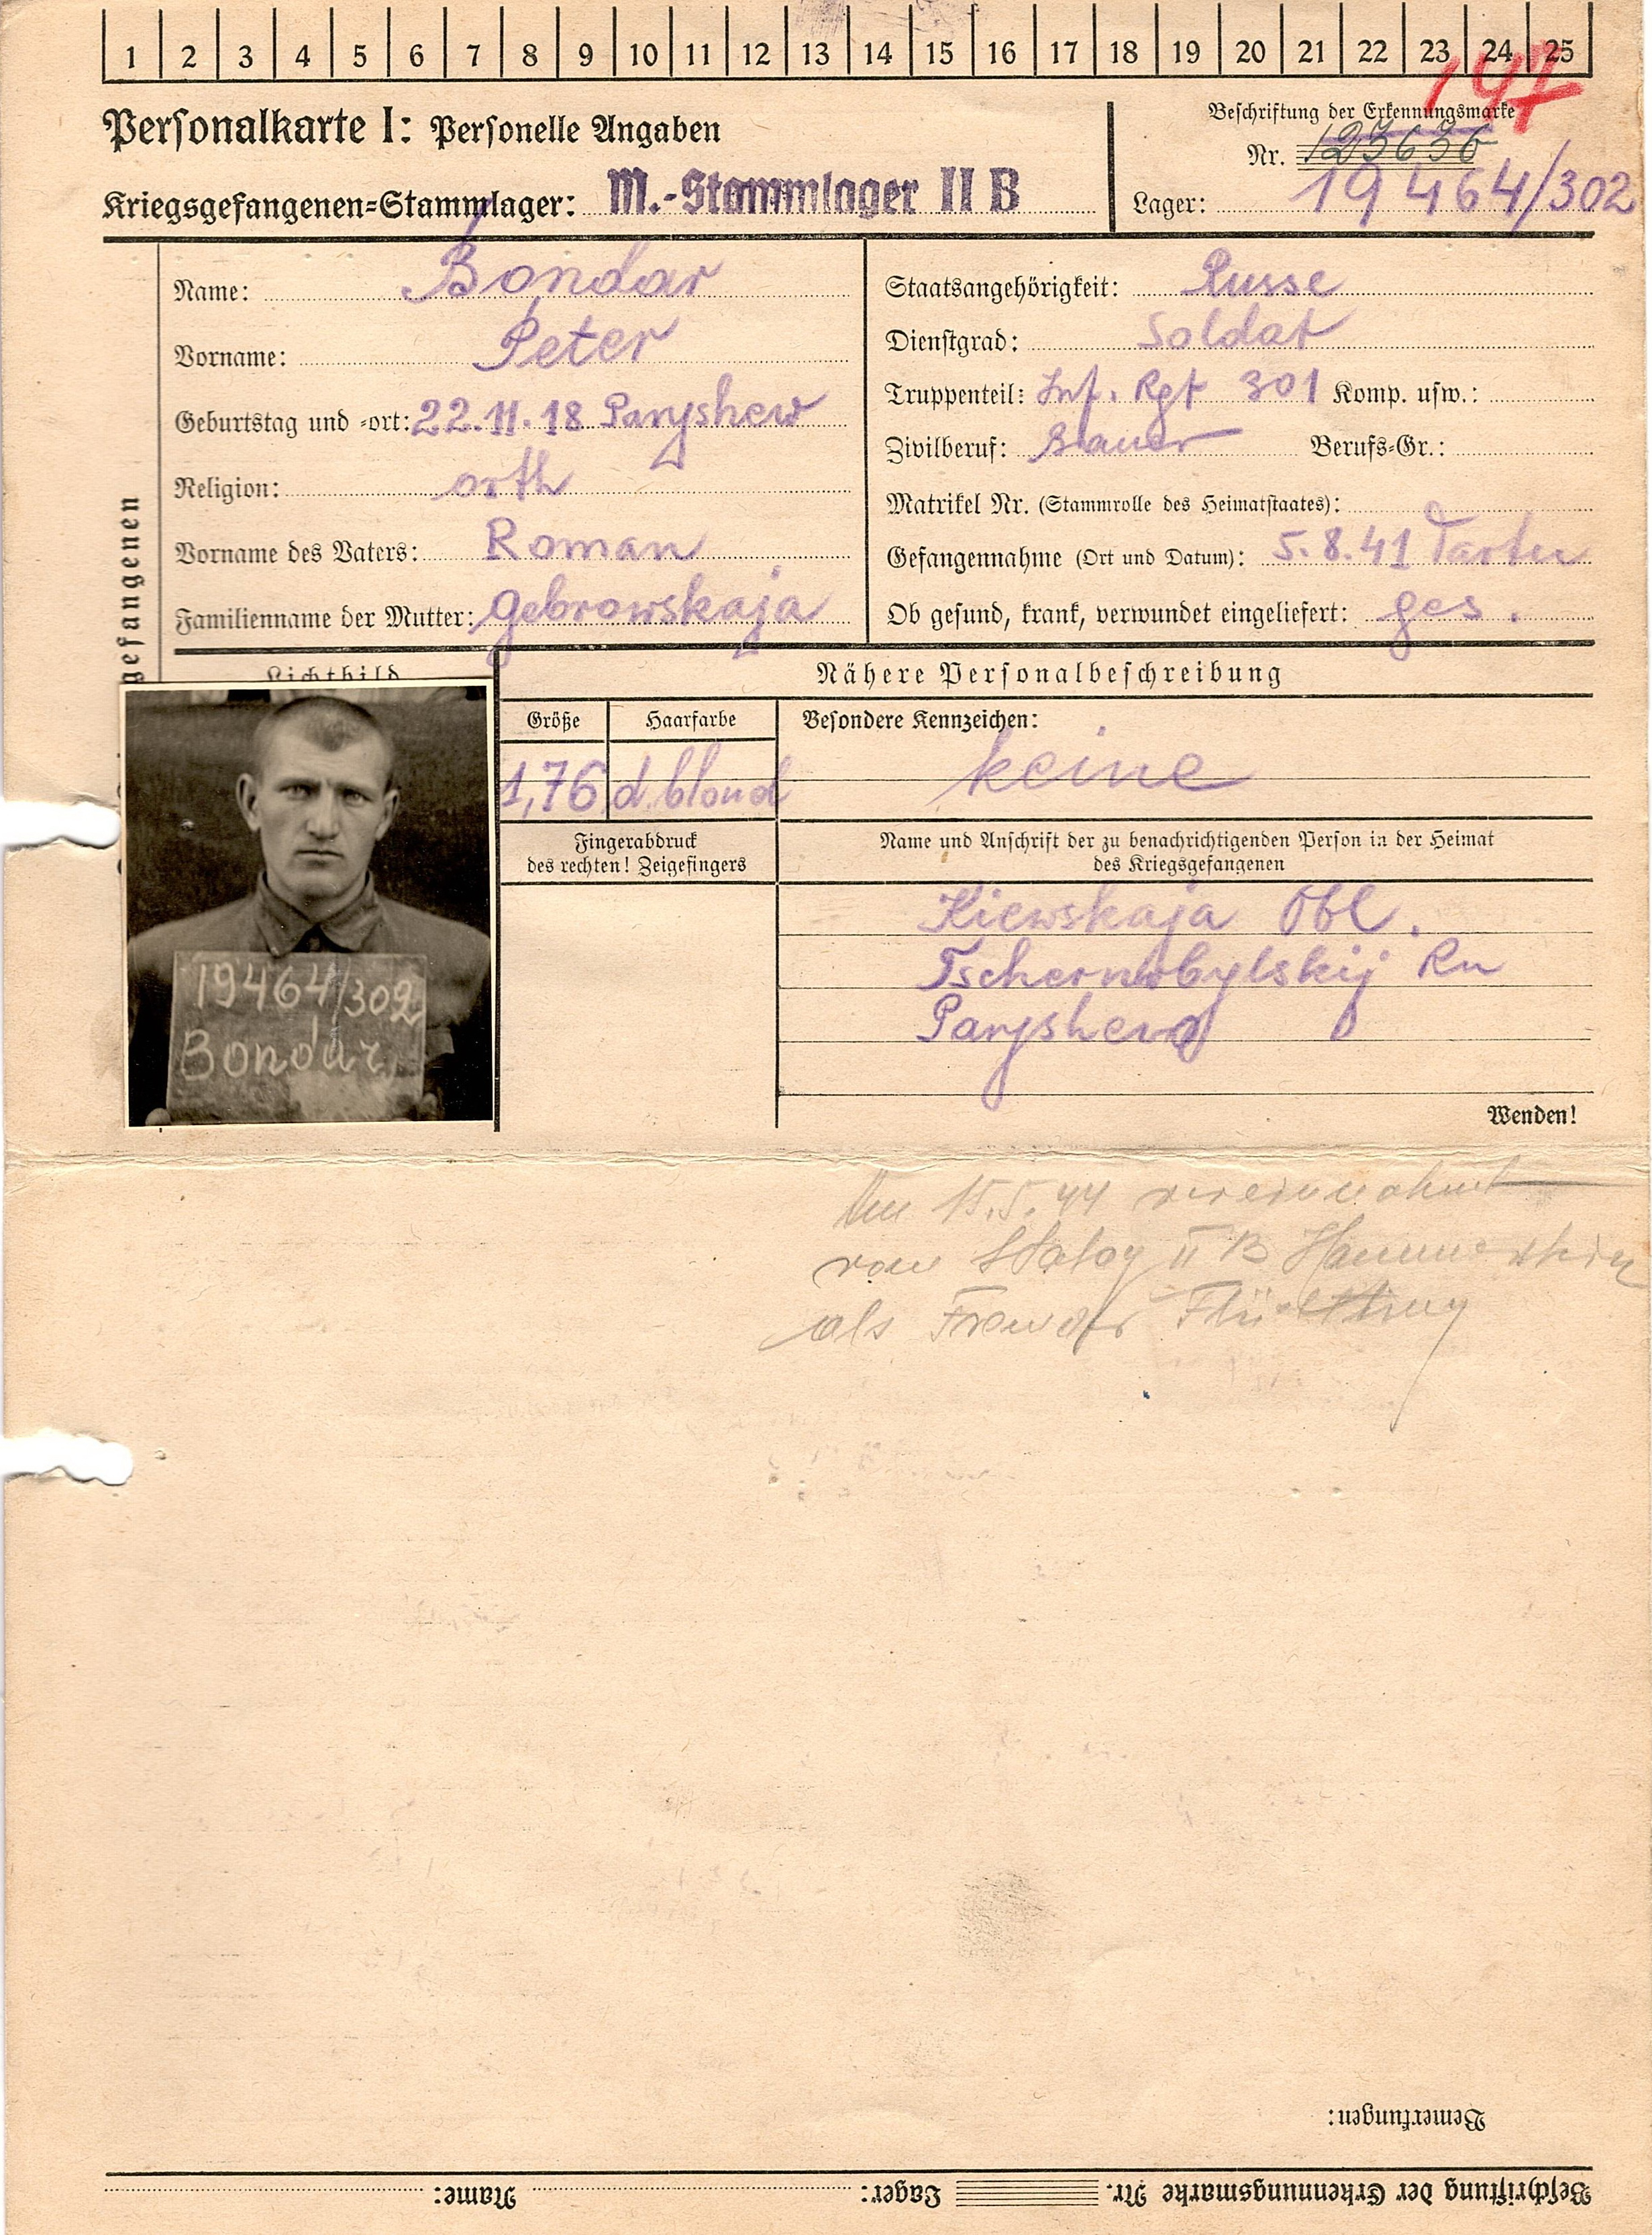 1 2 3 4 5 6 7 8 9 10 11 12 13 14 15 16 17 18 19 20 21 22 23 24 25
147
Personalkarte I: Personelle Angaben
Beschriftung der Erkennungsmarke
Nr. 123636
Kriegsgefangenen-Stammlager: M.-Stammlager II B
Lager: 19464/302
gefangenen
Name: Bondar
Vorname: Peter
Geburtstag und -ort: 22.11.18 Paryshew
Religion: orth
Vorname des Vaters: Roman
Familienname der Mutter: Gebrowskaja
Staatsangehörigkeit: Russe
Dienstgrad: Soldat
Truppenteil: Inf. Rgt 301 Komp. usw.:
Zivilberuf: Bauer Berufs-Gr.:
Matrikel Nr. (Stammrolle des Heimatstaates):
Gefangennahme (Ort und Datum): 5.8.41 Tartu
Ob gesund, krank, verwundet eingeliefert: ges.
Lichtbild
19464/302
Bondar
Nähere Personalbeschreibung
Größe
Haarfarbe
Besondere Kennzeichen:
1,76
d. blond
keine
Fingerabdruck
des rechten! Zeigefingers
Name und Anschrift der zu benachrichtigenden Person in der Heimat
des Kriegsgefangenen
Kiewskaja Obl.
Tschernobylskij Rn
Paryshew
Wenden!
15.5.44 vereinnahmt
von Stalag II B Hammerstein
als Fremder Flüchtling
Bemerkungen:
Beschriftung der Erkennungsmarke Nr. Lager: Name: